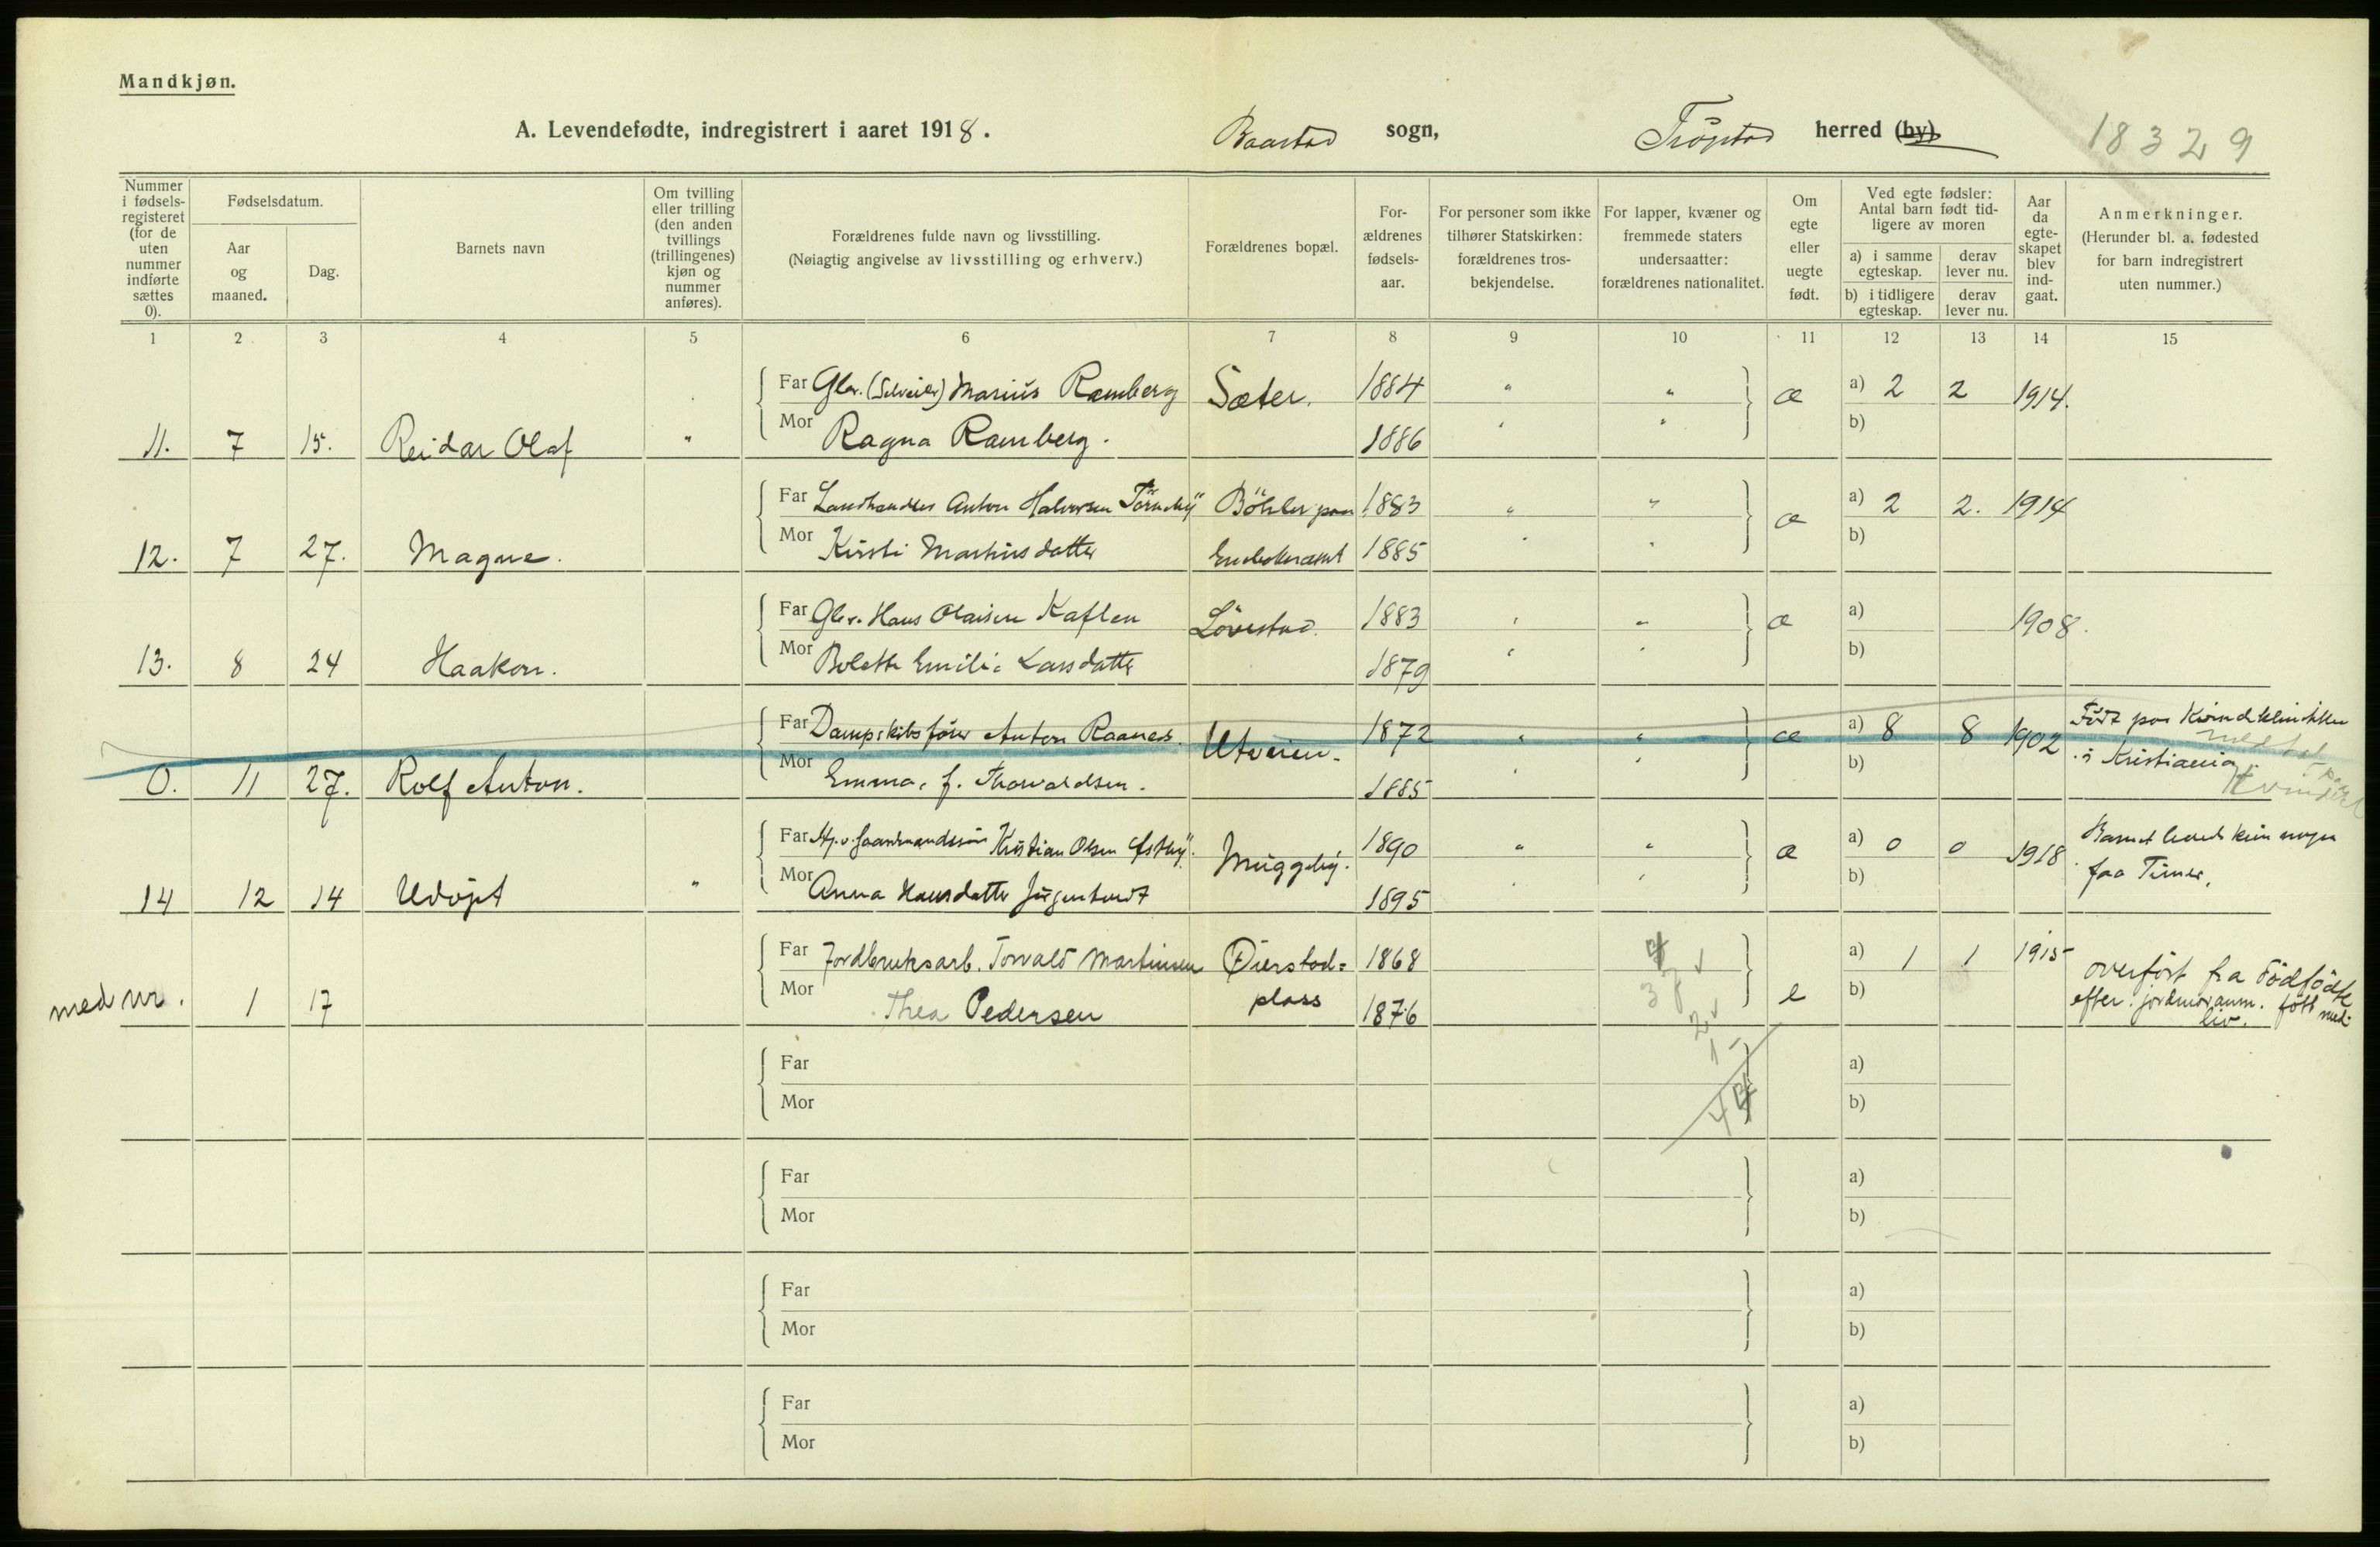 Mandkjøn.
A. Levendefødte, indregistrert i aaret 1918. Baastad sogn, Trøgstad herred (by)
18329
Nummer i fødsels- registeret (for de uten nummer indførte sættes 0).
Fødselsdatum.
Aar og maaned.
Dag.
Barnets navn
Om tvilling eller trilling (den anden tvillings (trillingenes) kjøn og nummer anføres).
Forældrenes fulde navn og livsstilling.
(Nøiagtig angivelse av livsstilling og erhverv.)
Forældrenes bopæl.
For- ældrenes fødsels- aar.
For personer som ikke tilhører Statskirken: forældrenes tros- bekjendelse.
For lapper, kvæner og fremmede staters undersaatter: forældrenes nationalitet.
Om egte eller uegte født.
Ved egte fødsler: Antal barn født tid- ligere av moren
a) i samme egteskap.
derav lever nu.
b) i tidligere egteskap.
derav lever nu.
Aar da egte- skapet blev ind- gaat.
Anmerkninger.
(Herunder bl. a. fødested for barn indregistrert uten nummer.)
1 2 3 4 5 6 7 8 9 10 11 12 13 14 15
Far Gbr. (Selveier) Marius Ramberg Sæter. 1884 " " æ a) 2 2 1914.
11. 7 15. Reidar Olaf " Mor Ragna Ramberg. 1886 " " b)
Far Landhandler Anton Halvorsen Törneby Böhler paa 1883 " " æ a) 2 2. 1914
12. 7 27. Magne. Mor Kirsti Martinsdatter 1885 " " b)
Far Gbr. Hans Olaisen Kaflen Lövestad. 1883 " " æ a) 1908.
13. 8 24 Haakon. Mor Bolette Emilie Larsdatter 1879 " " b)
Far Dampskibsförer Anton Raanes. Utveien. 1872 " " æ a) 8 8 1902 Födt paa Kvindeklinikken
0. 11 27. Rolf Anton. Mor Emma, f. Thorvaldsen. 1885 " " b) i Kristiania.
Far Kristian Olsen Muggeby. 1890 " " æ a) 0 0 1918. Barnet levede kun nogen
14 12 14 Udöpt " Mor Anna Hansdatter 1895 " " b) faa Timer.
Far Jordbruksarb. Torvald Martinsen Øierstad= 1868 a) 1 1 1915 overfört fra Dödfödte
med nr. 1 17 Mor Thea Pedersen plass 1876 e b) efter jordmoranm. fött med
liv.
Far a)
Mor b)
Far a)
Mor b)
Far a)
Mor b)
Far a)
Mor b)